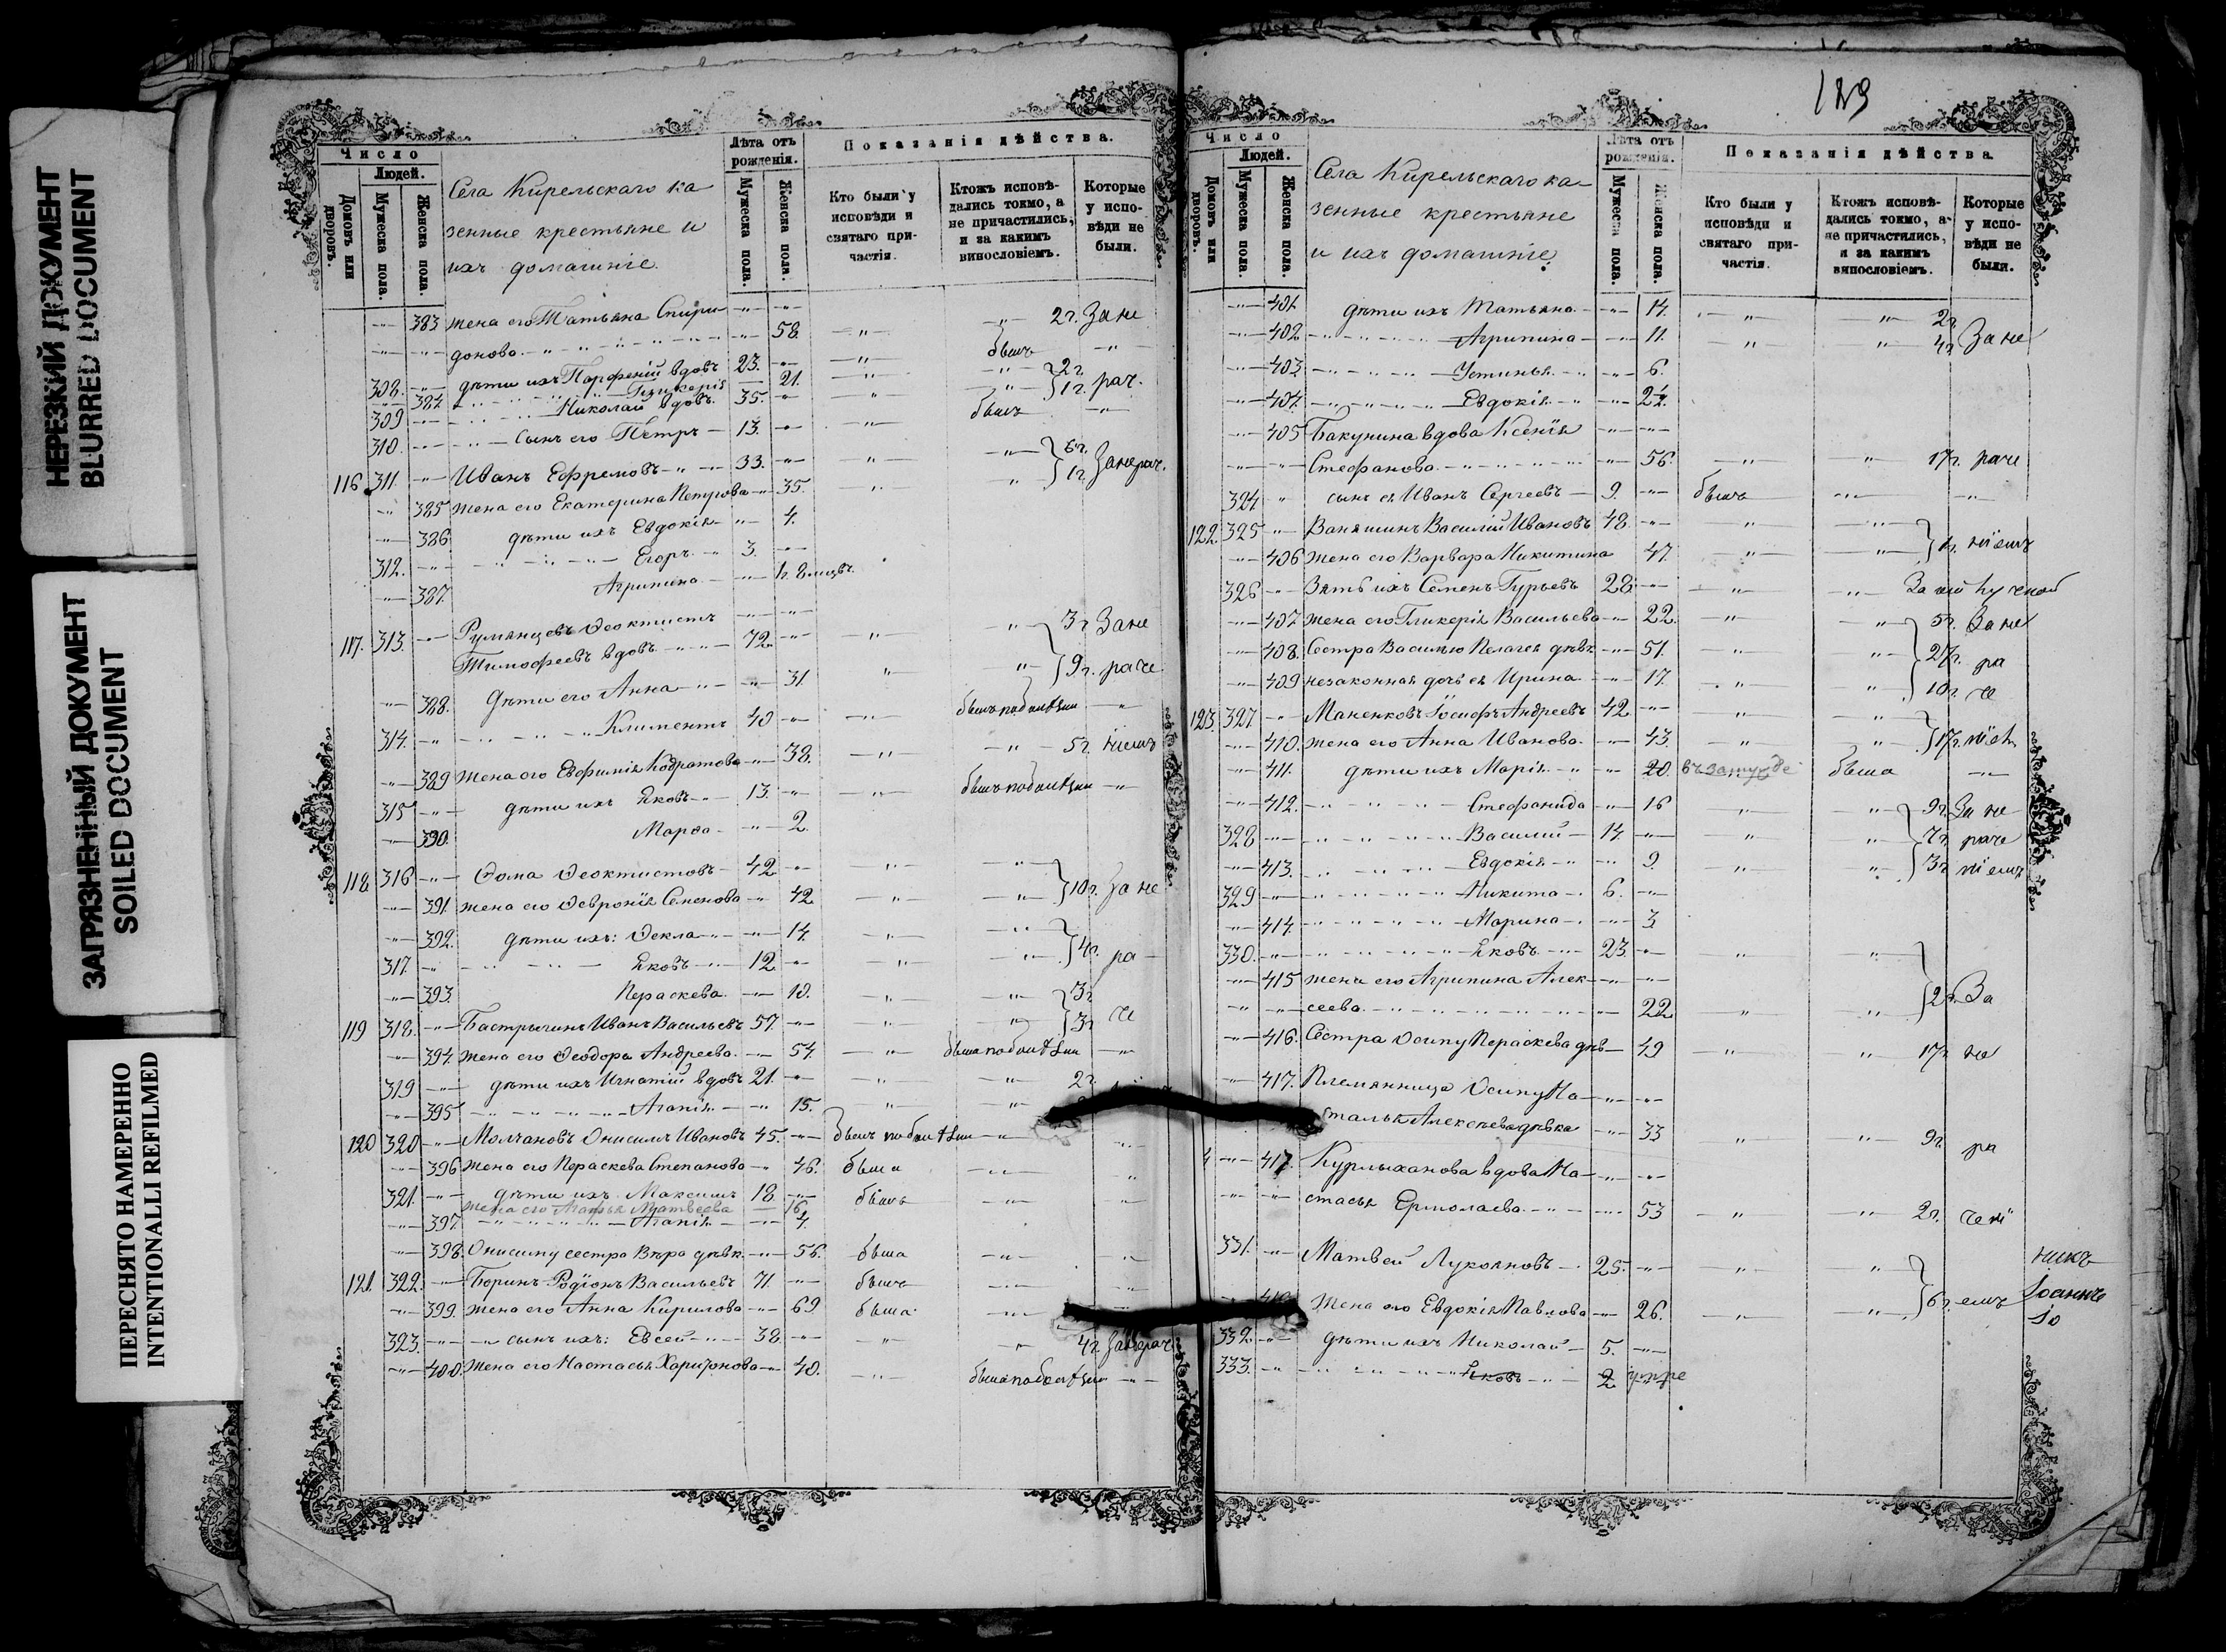 НЕРЕЗКИЙ ДОКУМЕНТ
BLURRED DOCUMENT
ЗАГРЯЗНЕННЫЙ ДОКУМЕНТ
SOILED DOCUMENT
ПЕРЕСНЯТО НАМЕРЕННО
INTENTIONALLI REFILMED
Число
Людей.
Домовъ или дворовъ.
Мужеска пола.
Женска пола.
Села Кирельскаго ка
зенные крестьяне и
ихъ домашніе.
Лѣта отъ рожденія.
Мужеска пола.
Женска пола.
Показанія дѣйства.
Кто были у исповѣди и святаго при-частія.
Ктожъ исповѣ-дались токмо, а не причастились, и за какимъ винословіемъ.
Которые у испо-вѣди не были.
383 жена его Татьяна Спири
донова 58. 2 г. Зане
308. дѣти ихъ Парфеній вдовъ 23. былъ
384. Гликерія 21. 2 г.
309 Николай вдовъ. 35. 1 г. рач.
310. сынъ его Петръ 13. былъ
116 311. Иванъ Ефремовъ 33. 6 г.
385 жена его Екатерина Петрова 35. 1 г. Зане рач.
386 дѣти ихъ Евдокія 4.
312. Егоръ 3.
387. Агрипина 1 г. 8 мцвъ.
117. 313. Румянцевъ Ѳеоктистъ
Тимофеевъ вдовъ 72. 3 г. Зане
388. дѣти его Анна 31 9 г. раче
314. Климентъ 40
389 жена его Евфимія Кодратова 38. 5 г. ніемъ
315 дѣти ихъ Яковъ 13.
390. Марѳа 2.
118 316 Ѳома Ѳеоктистовъ 42
391. жена его Ѳевронія Семенова 42 10 г. За не
392. дѣти ихъ: Ѳекла 14.
317. Яковъ 12 4 г. ра
393. Пераскева 10. 3 г.
119 318. Бастрыгинъ Иванъ Васильевъ 57. 3 г. че
394. жена его Ѳеодора Андреева 54.
319 дѣти ихъ Игнатій вдовъ 21. 2 г.
395 Агапія 15.
120 320 Молчановъ Онисимъ Ивановъ 45.
396 жена его Пераскева Степанова 46. была
321. дѣти ихъ Максимъ 18 былъ
жена его Марья Матвеева 16
397. Агапія 4.
398. Онисиму сестра Вѣра дѣвк. 56. была
121. 322. Боринъ Родіонъ Васильевъ 71 былъ
399. жена его Анна Кирилова 69 была
323. сынъ ихъ: Евсей 38. 4 г. Зане рач
400. жена его Настасья Харитонова 40.
Число
Людей.
Домовъ или дворовъ.
Мужеска пола.
Женска пола.
Села Кирельскаго ка-
зенные крестьяне
и ихъ домашніе.
Лѣта отъ рожденія.
Мужеска пола.
Женска пола.
Показанія дѣйства.
Кто были у исповѣди и святаго при-частія.
Ктожъ исповѣ-дались токмо, а не причастились, и за какимъ винословіемъ.
Которые у испо-вѣди не были.
401. дѣти ихъ Татьяна 14. 2 г.
402 Агрипина 11. 4 г. За не
403. Устинья 6.
404. Евдокія
405 Бакунина вдова Ксенія
Стефанова 56. 17 г. раче
324 сынъ ея Иванъ Сергеевъ 9. былъ
122. 325 Ваняшинъ Василій Ивановъ 48.
406 жена его Варвара Никитина 47. ніемъ
326 Зять ихъ Семенъ Гурьевъ 28.
407 жена его Гликерія Васильева 22 5 г. Зане
408. Сестра Василью Пелагея дѣвк 51. 27 г. ра
409 незаконная дочь ея Ирина 17. 10 г. че
123. 327 Маненковъ Іосифъ Андреевъ 42
410. жена его Анна Иванова 43 17 г.
411. дѣти ихъ Марія 20. была
412. Стефанида 16 9 г. За не
328 Василій 14. 7 г. раче
413. Евдокія 9 3 г. ніемъ
329 Никита 6.
414. Марина 3
330. Яковъ 23.
415 жена его Агрипина Алек
сеева 22 2 г. За
416. Сестра Осипу Пераскева дѣв 49 17 г. не
417. Племянница Осипу На
сталья Алексѣева дѣвка 33 9 г. ра
417. Курлыханова вдова На
стасья Ермолаева 53 2 г. чені
331. Матвей Лукояновъ 25.
Жена его Евдокія Павлова 26. 6 г. емъ
332. дѣти ихъ Николай 5.
333. Яковъ 2 умре
никъ
Іоаннъ
Іо